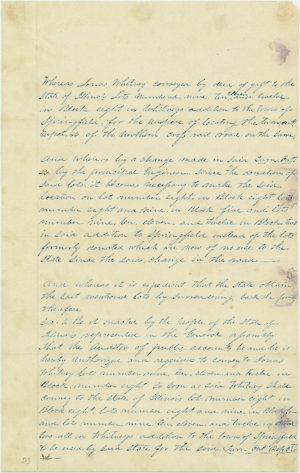 Whereas Jonas Whitney conveyed by deed of gift to the
State of Illinois Lots numbered nine, ten, eleven and twelve
in Block eight in Whitneys addition to the town of
Springfield, for the purpose of locating the turn out
Depot &c of the Northern Cross rail road on the same
And whereas by a change made in said Turn Out
&c by the principal Engineer since the donation of
said lots, it becomes necessary to make the said
location on lot number eight, in Block eight lots
number eight and nine, in Block five and lots
number nine, ten, eleven, and twelve in Block two
in said addition to Springfield instead of the lots
formerly donated which are now of no use to the
State since the said change in the road
And whereas it is expedient that the State obtain
the last mentioned lots by surrendering back the first
therefor
Sec. 1. Be it enacted by the people of the State of
Illinois represented in the General Assembly
That the Auditor of public accounts be and he is
hereby authorized and required to convey to Jonas
Whitney Lots number nine, ten, eleven and twelve in
Block number eight so soon as said Whitney shall
convey to the State of Illinois lot number eight in
Block eight, lots number eight and nine in Block five
and lots number nine, ten, eleven and twelve in Block
two all in Whitneys addition to the town of Springfield
to be used by said State for the said Turn Out, Depot
&c